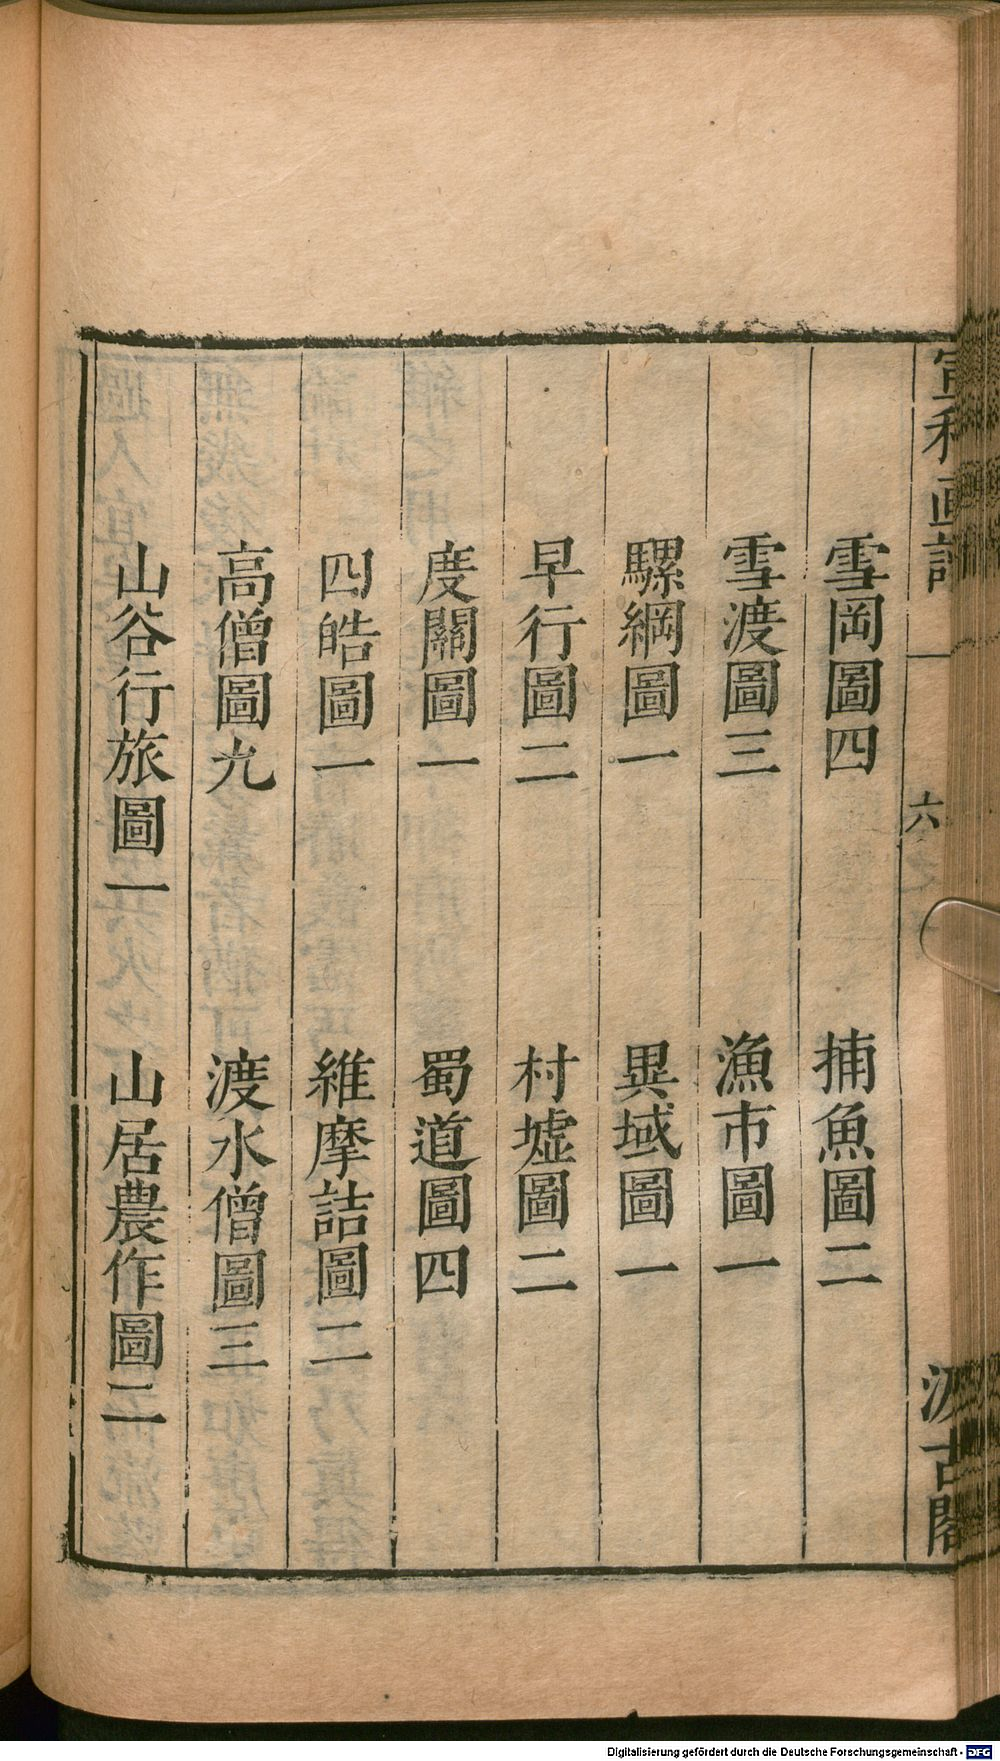 宣和畫譜 六 汲古閣
雪岡圖四 捕魚圖二
雪渡圖三 漁市圖一
騾綱圖一 異域圖一
早行圖二 村墟圖二
度關圖一 蜀道圖四
四皓圖一 維摩詰圖二
高僧圖九 渡水僧圖三
山谷行旅圖一 山居農作圖二
Digitalisierung gefördert durch die Deutsche Forschungsgemeinschaft - DFG